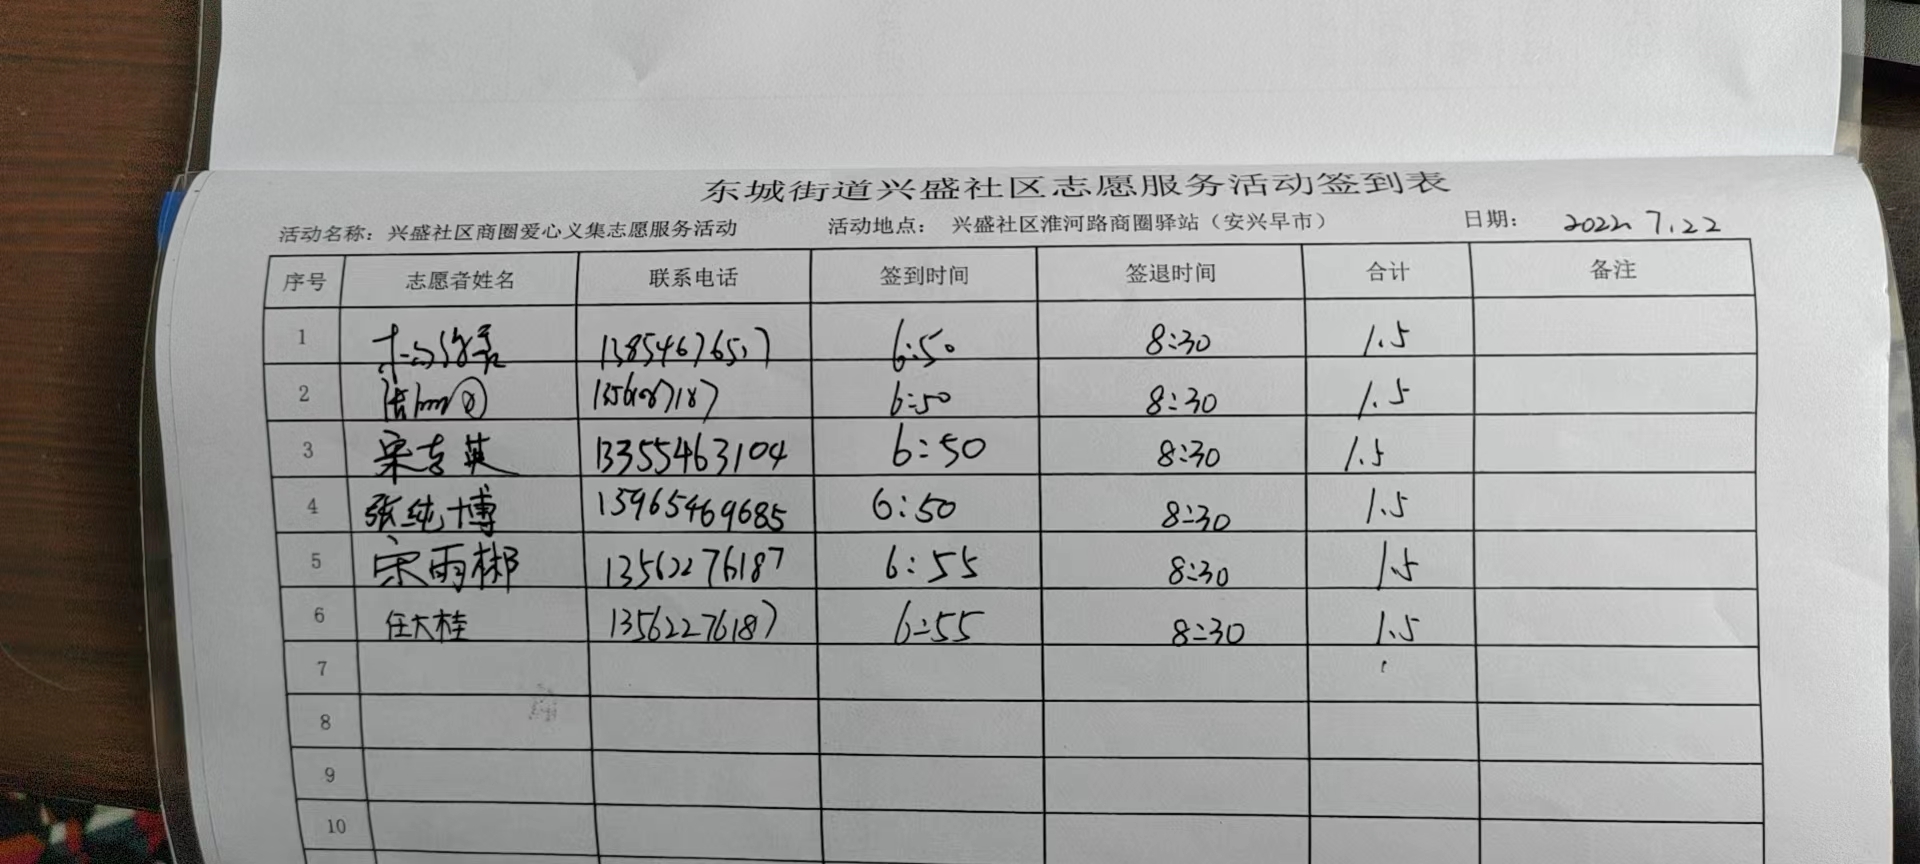 东城街道兴盛社区志愿服务活动签到表
活动名称：兴盛社区商圈爱心义集志愿服务活动 活动地点： 兴盛社区淮河路商圈驿站（安兴早市） 日期： 2022 7.22
序号 志愿者姓名 联系电话 签到时间 签退时间 合计 备注
1 6:50 8:30 1.5
2 6:50 8:30 1.5
3 宋吉英 13355463104 6:50 8:30 1.5
4 张纯博 15965469685 6:50 8:30 1.5
5 宋雨彬 13562276187 6:55 8:30 1.5
6 任大桂 13562276187 6:55 8:30 1.5
7
8
9
10